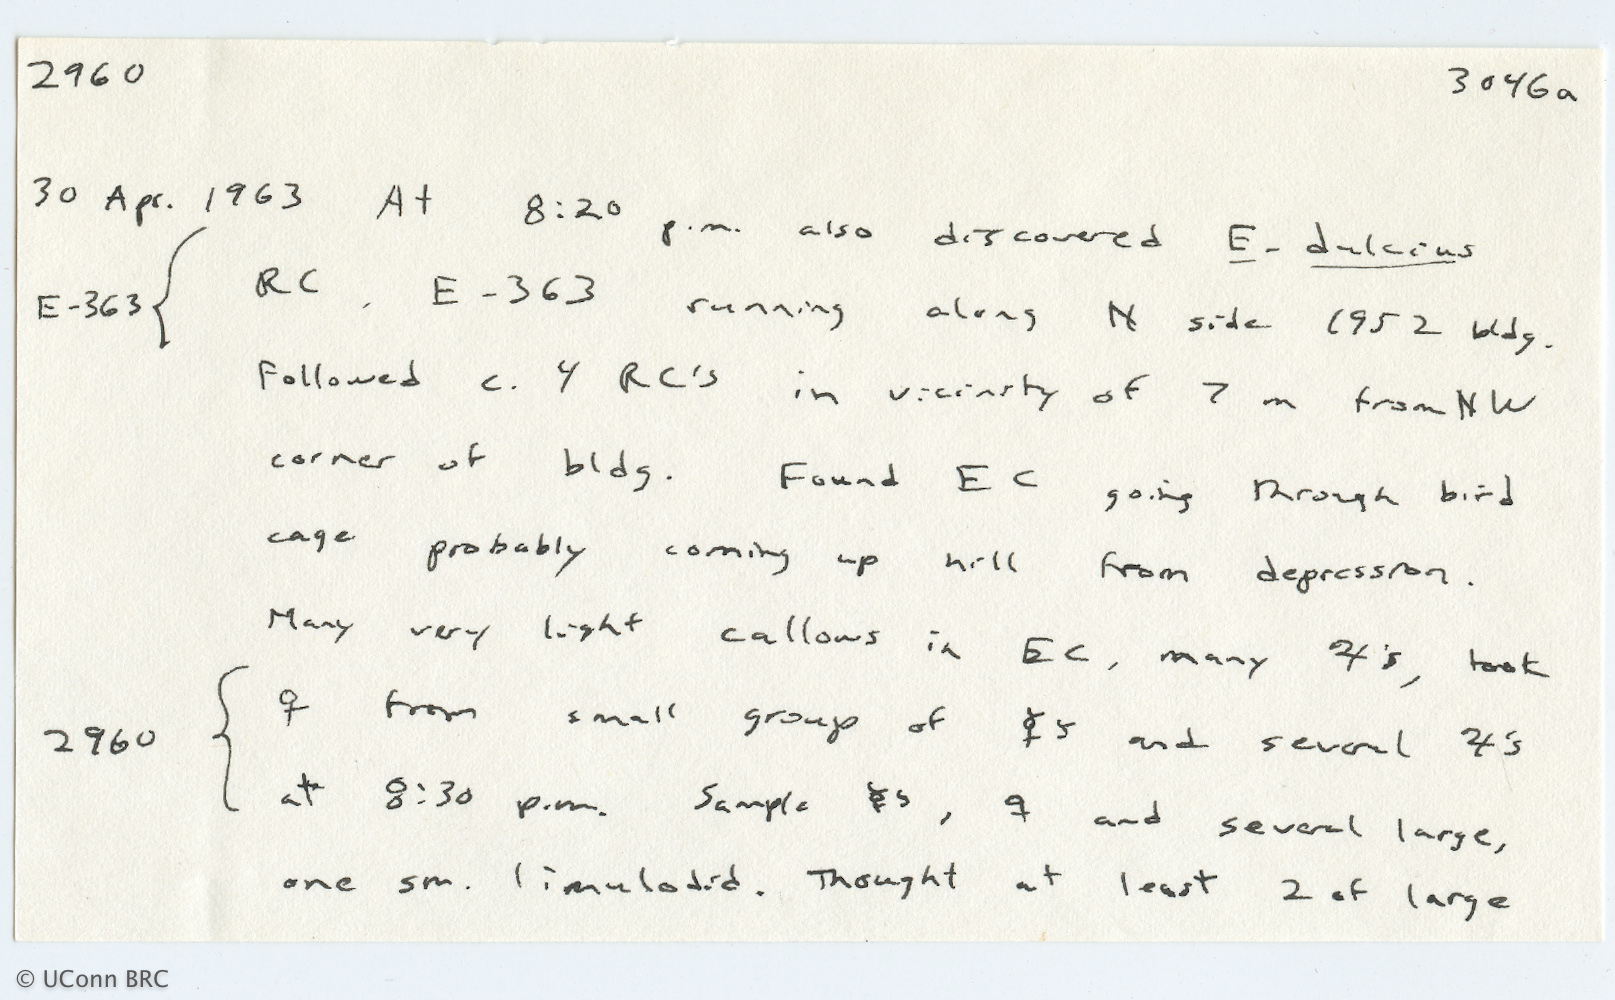 2960 3046a
30 Apr. 1963 At 8:20 p.m. also discovered E. dulcius
E-363 { RC, E-363 running along N side 1952 bldg.
Followed c. 4 RC's in vicinity of 7 m from NW
corner of bldg. Found EC going through bird
cage probably coming up hill from depression.
Many very light callows in EC, many ♃'s, took
2960 { ♀ from small group of ☿s and several ♃'s
at 8:30 p.m. Sample ☿s, ♀ and several large,
one sm. limulodid. Thought at least 2 of large
© UConn BRC